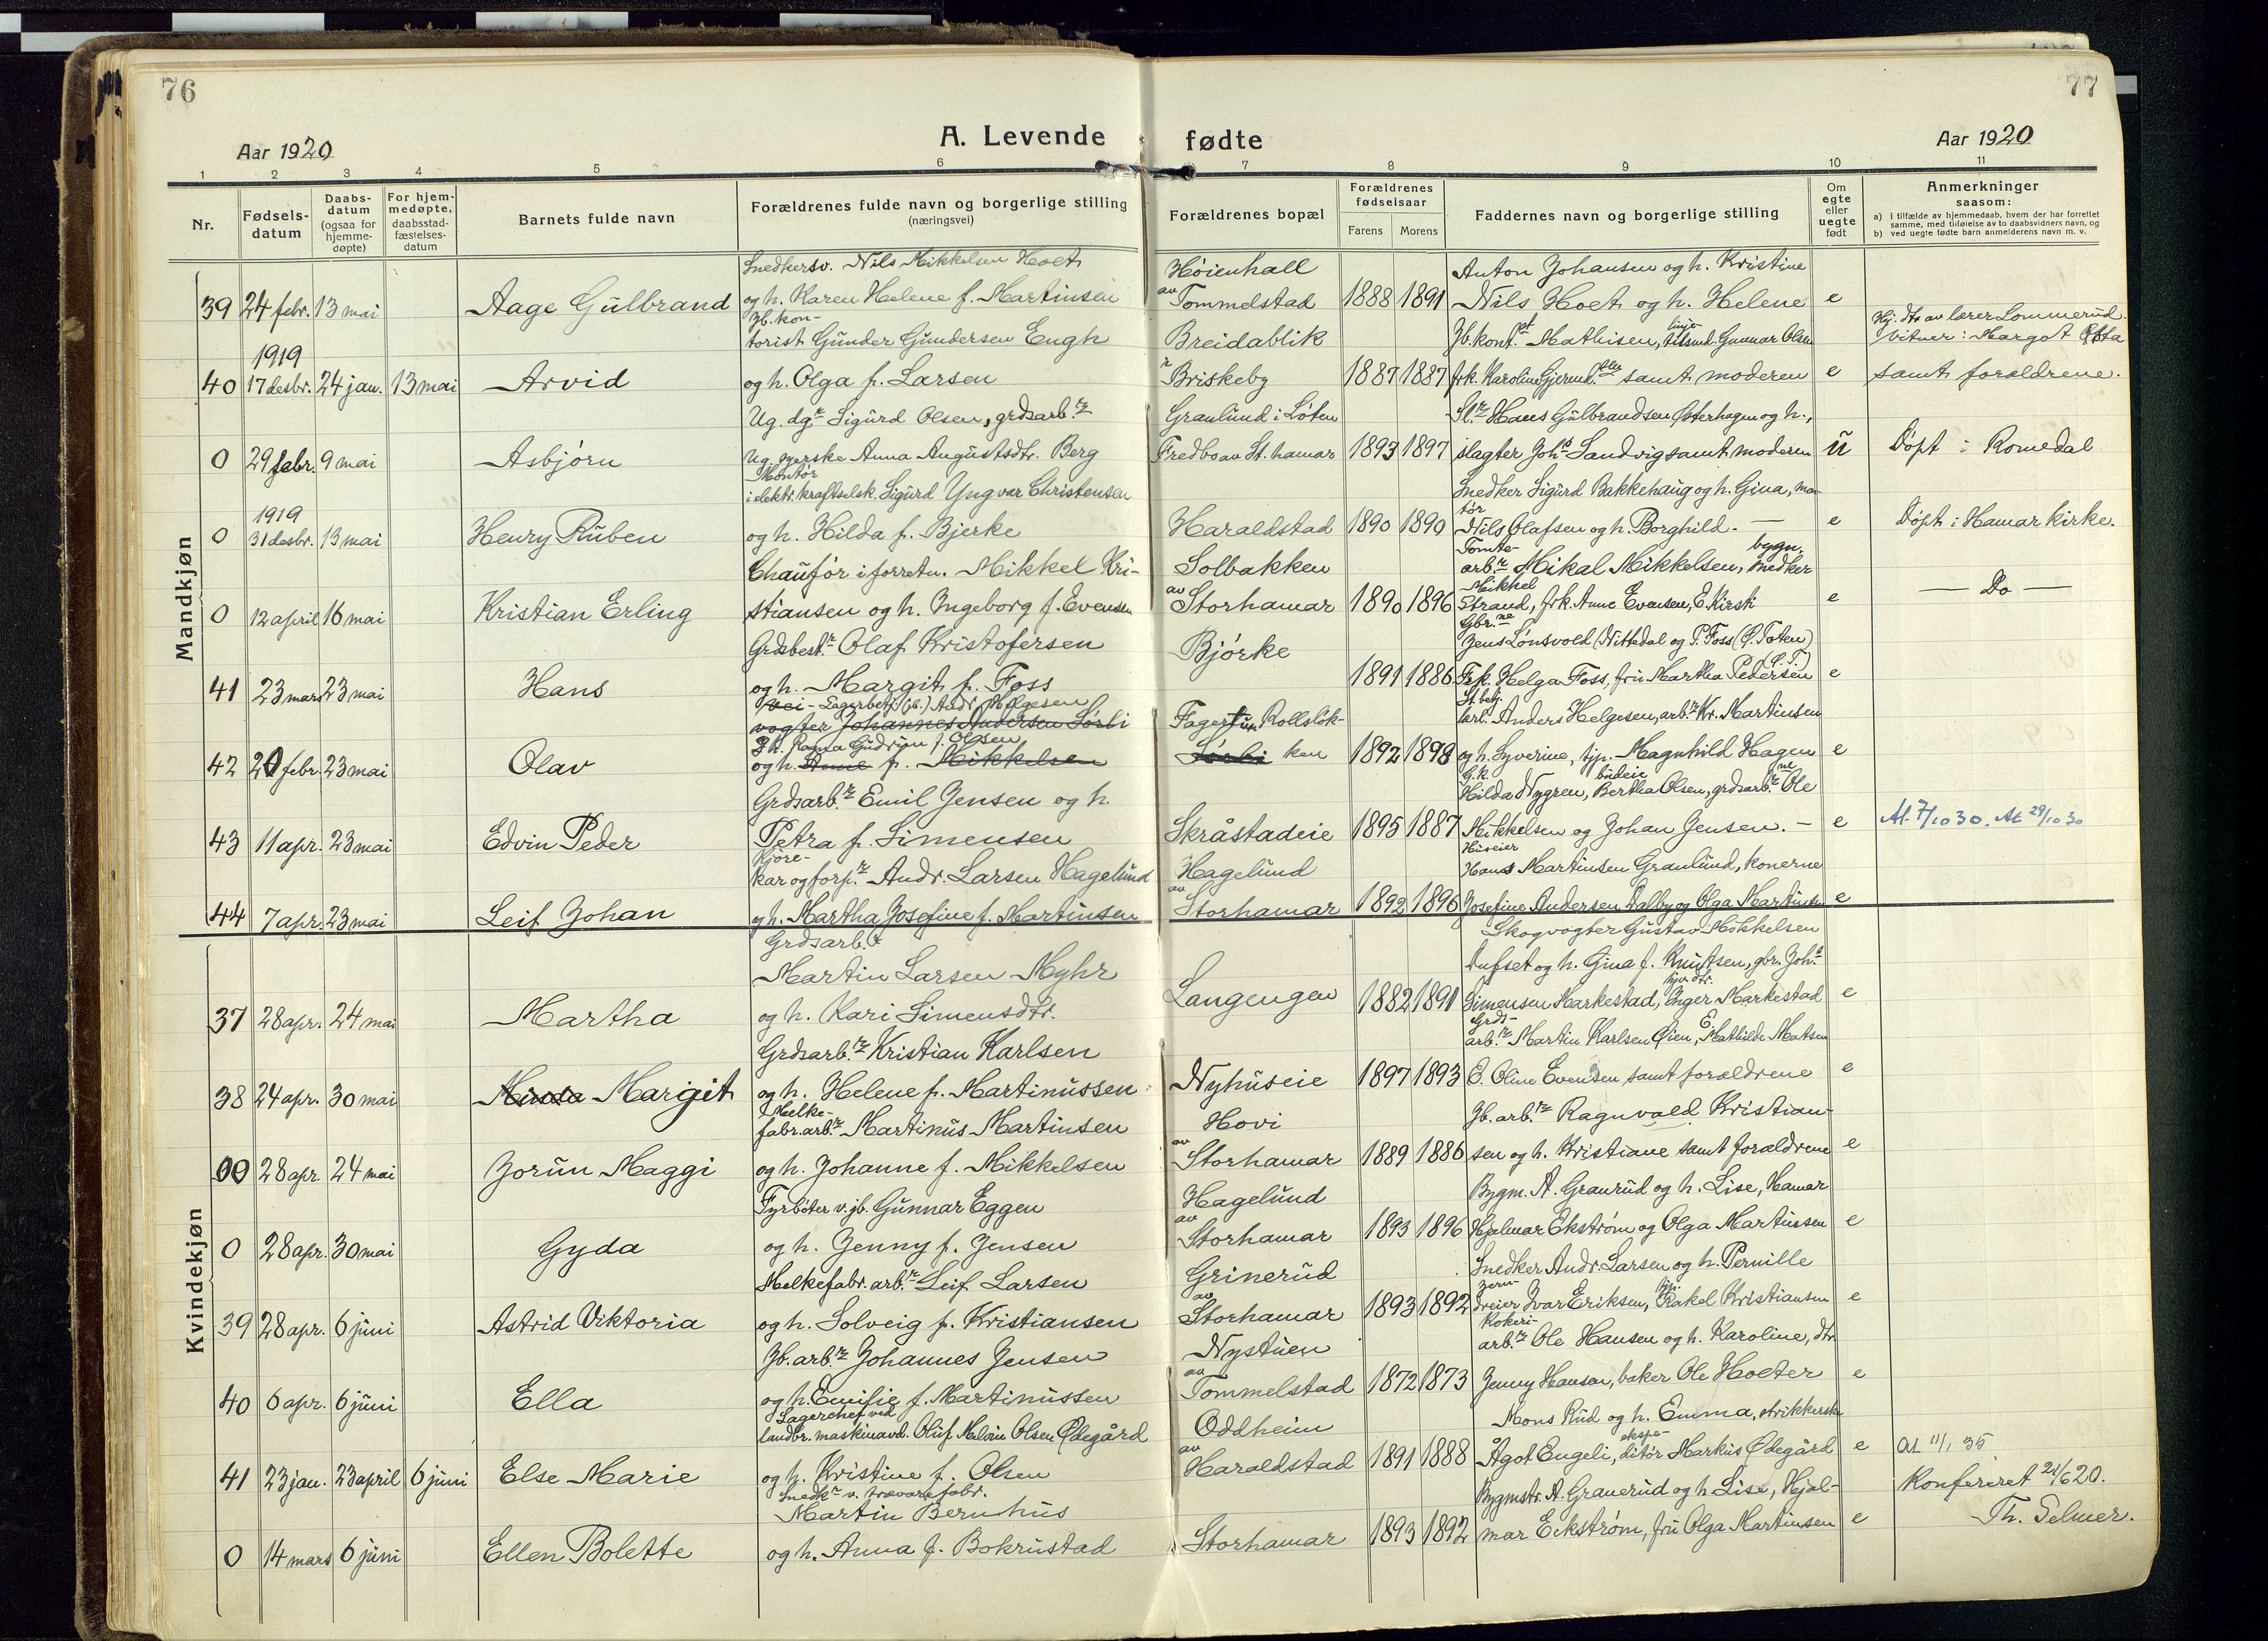 76
77
Aar 1920
A. Levende fødte
Aar 1920
1 2 3 4 5 6 7 8 9 10 11
Nr.
Fødsels-
datum
Daabs-
datum
(ogsaa for
hjemme-
døpte)
For hjem-
medøpte,
daabsstad-
fæstelses-
datum
Barnets fulde navn
Forældrenes fulde navn og borgerlige stilling
(næringsvei)
Forældrenes bopæl
Forældrenes
fødselsaar
Farens Morens
Faddernes navn og borgerlige stilling
Om
egte
eller
uegte
født
Anmerkninger
saasom:
a) i tilfælde av hjemmedaab, hvem der har forrettet
samme, med tilføielse av to daabsvidners navn, og
b) ved uegte fødte barn anmelderens navn m. v.
Mandkjøn
Snedkersv. Nils Mikkelsen Hoet Høienhall Anton Johansen og h. Kristine
39 24 febr. 13 mai Aage Gulbrand og h. Karen Helene f. Martinsen av Tommelstad 1888 1891 Nils Hoet og h. Helene e
Jb. kon-
torist Gunder Gundersen Engh Breidablik Jb. kont. Mathisen, Gunnar Olsen Hj. dt. av lærer Lommerud.
1919 Vitner: Margot
40 17 desbr. 24 jan. 13 mai Arvid og h. Olga f. Larsen Briskeby 1887 1887 frk. Karoline samt moderen e samt forældrene.
Ug. dgr. Sigurd Olsen, grdsarb.r Granlund i Løten Hans Gulbrandsen Østerhagen og h.,
0 29 febr. 9 mai Asbjørn Ug. syerske Anna Augustsdtr. Berg Fredbo av St. hamar 1893 1897 slagter Joh.s Sandvig samt moderen u Døpt i Romedal
Montør
i elektr. kraftselsk. Sigurd Yngvar Christensen Snedker Sigurd Bakkehaug og h. Gina, mon-
1919 tør
0 31 desbr. 13 mai Henry Ruben og h. Hilda f. Bjerke Haraldstad 1890 1890 Nils Olafsen og h. Borghild. — e Døpt i Hamar kirke.
Tomte- bygn.
Chaufør i forretn. Mikkel Kri- Solbakken arb.r Mikal Mikkelsen, snedker
Mikkel
0 12 april 16 mai Kristian Erling stiansen og h. Ingeborg f. Evensen av Storhamar 1890 1896 Strand, frk. Anne Evensen, E. Kirsti e — Do —
Gbr.ne
Grdsbest.r Olaf Kristofersen Bjørke Jens Lønsvold (Nittedal og P. Foss (Ø. Toten)
(Ø.T.)
41 23 mars 23 mai Hans og h. Margit f. Foss 1891 1886 Frk. Helga Foss, fru Martha Pedersen e
vei- Lagerbetj. (jb.) Andr. Helgesen St. betj.
vogter Johannes Andersen Sørli Fagertun Rollsløk- Anders Helgesen, arb.r Kr. Martinsen
Gudrun f. Olsen
42 20 febr. 23 mai Olav og h. Anne f. Mikkelsen Sørli ken 1892 1898 og h. Syverine, tjp. Magnhild Hagen e
G.k. budeie ne
Grdsarb.r Emil Jensen og h. Hilda Nygren, Bertha Olsen, grdsarb.r Ole
43 11 apr. 23 mai Edvin Peder Petra f. Simensen Skråstadeie 1895 1887 Mikkelsen og Johan Jensen. — e At. 7/10 30. At 29/10 30
Kjøre- Huseier
kar og forp.r Andr. Larsen Hagelund Hagelund Hans Martinsen Granlund, konerne
44 7 apr. 23 mai Leif Johan og h. Martha Josefine f. Martinsen av Storhamar 1892 1896 Josefine Andersen Dalby og Olga Martinsen e
Kvindekjøn
Grdsarb.r Skogvogter Gustav Mikkelsen
Martin Larsen Myhr Tufset og h. Gina f. Knutsen, gbr. Joh.s
37 28 apr. 24 mai Martha og h. Kari Simensdtr. Langengen 1882 1891 Simensen Markestad, Inger Markestad e
Grds-
Grdsarb.r Kristian Karlsen arb.r Martin Karlsen Øien, E. Mathilde Matsen
38 24 apr. 30 mai Margit og h. Helene f. Martinussen Nyhuseie 1897 1893 E. Oline Evensen samt forældrene e
Melke-
fabr. arb.r Martinus Martinsen Hovi Jb. arb.r Ragnvald Kristian-
00 28 apr. 24 mai Jorun Maggi og h. Johanne f. Mikkelsen av Storhamar 1889 1886 sen og h. Kristiane samt forældrene e
Fyrbøter v. jb. Gunnar Eggen Hagelund Bygm. A. Granrud og h. Lise, Hamar
0 28 apr. 30 mai Gyda og h. Jenny f. Jensen av Storhamar 1893 1896 Hjalmar Ekstrøm og Olga Martinsen e
Melkefabr. arb.r Leif Larsen Grinerud Snedker Andr. Larsen og h. Pernille
Jern- tjp.
39 28 apr. 6 juni Astrid Viktoria og h. Solveig f. Kristiansen av Storhamar 1893 1892 dreier Ivar Eriksen, Rakel Kristiansen e
Kokeri-
Jb. arb.r Johannes Jensen Nystuen arb.r Ole Hansen og h. Karoline, dtr.
40 6 apr. 6 juni Ella og h. Emilie f. Martinussen av Tommelstad 1872 1873 Jenny Hansen, baker Ole Hoeter e
Lagerchef ved
landbr. maskinavd. Oluf Melvin Olsen Ødegård Oddheim Mons Rud og h. Emma, strikkerske
ekspe-
41 23 jan. 23 april 6 juni Else Marie og h. Kristine f. Olsen av Haraldstad 1891 1888 Ågot Engeli, ditør Markus Ødegård e At 11/1 35
Snedk.r v. trævarefabr.
Martin Bernhus Bygmstr. A. Granerud og h. Lise, Hjal- Konferert 21/6 20.
0 14 mars 6 juni Ellen Bolette og h. Anna f. Bokrustad Storhamar 1893 1892 mar Eckstrøm, fru Olga Martinsen e Th. Selmer.